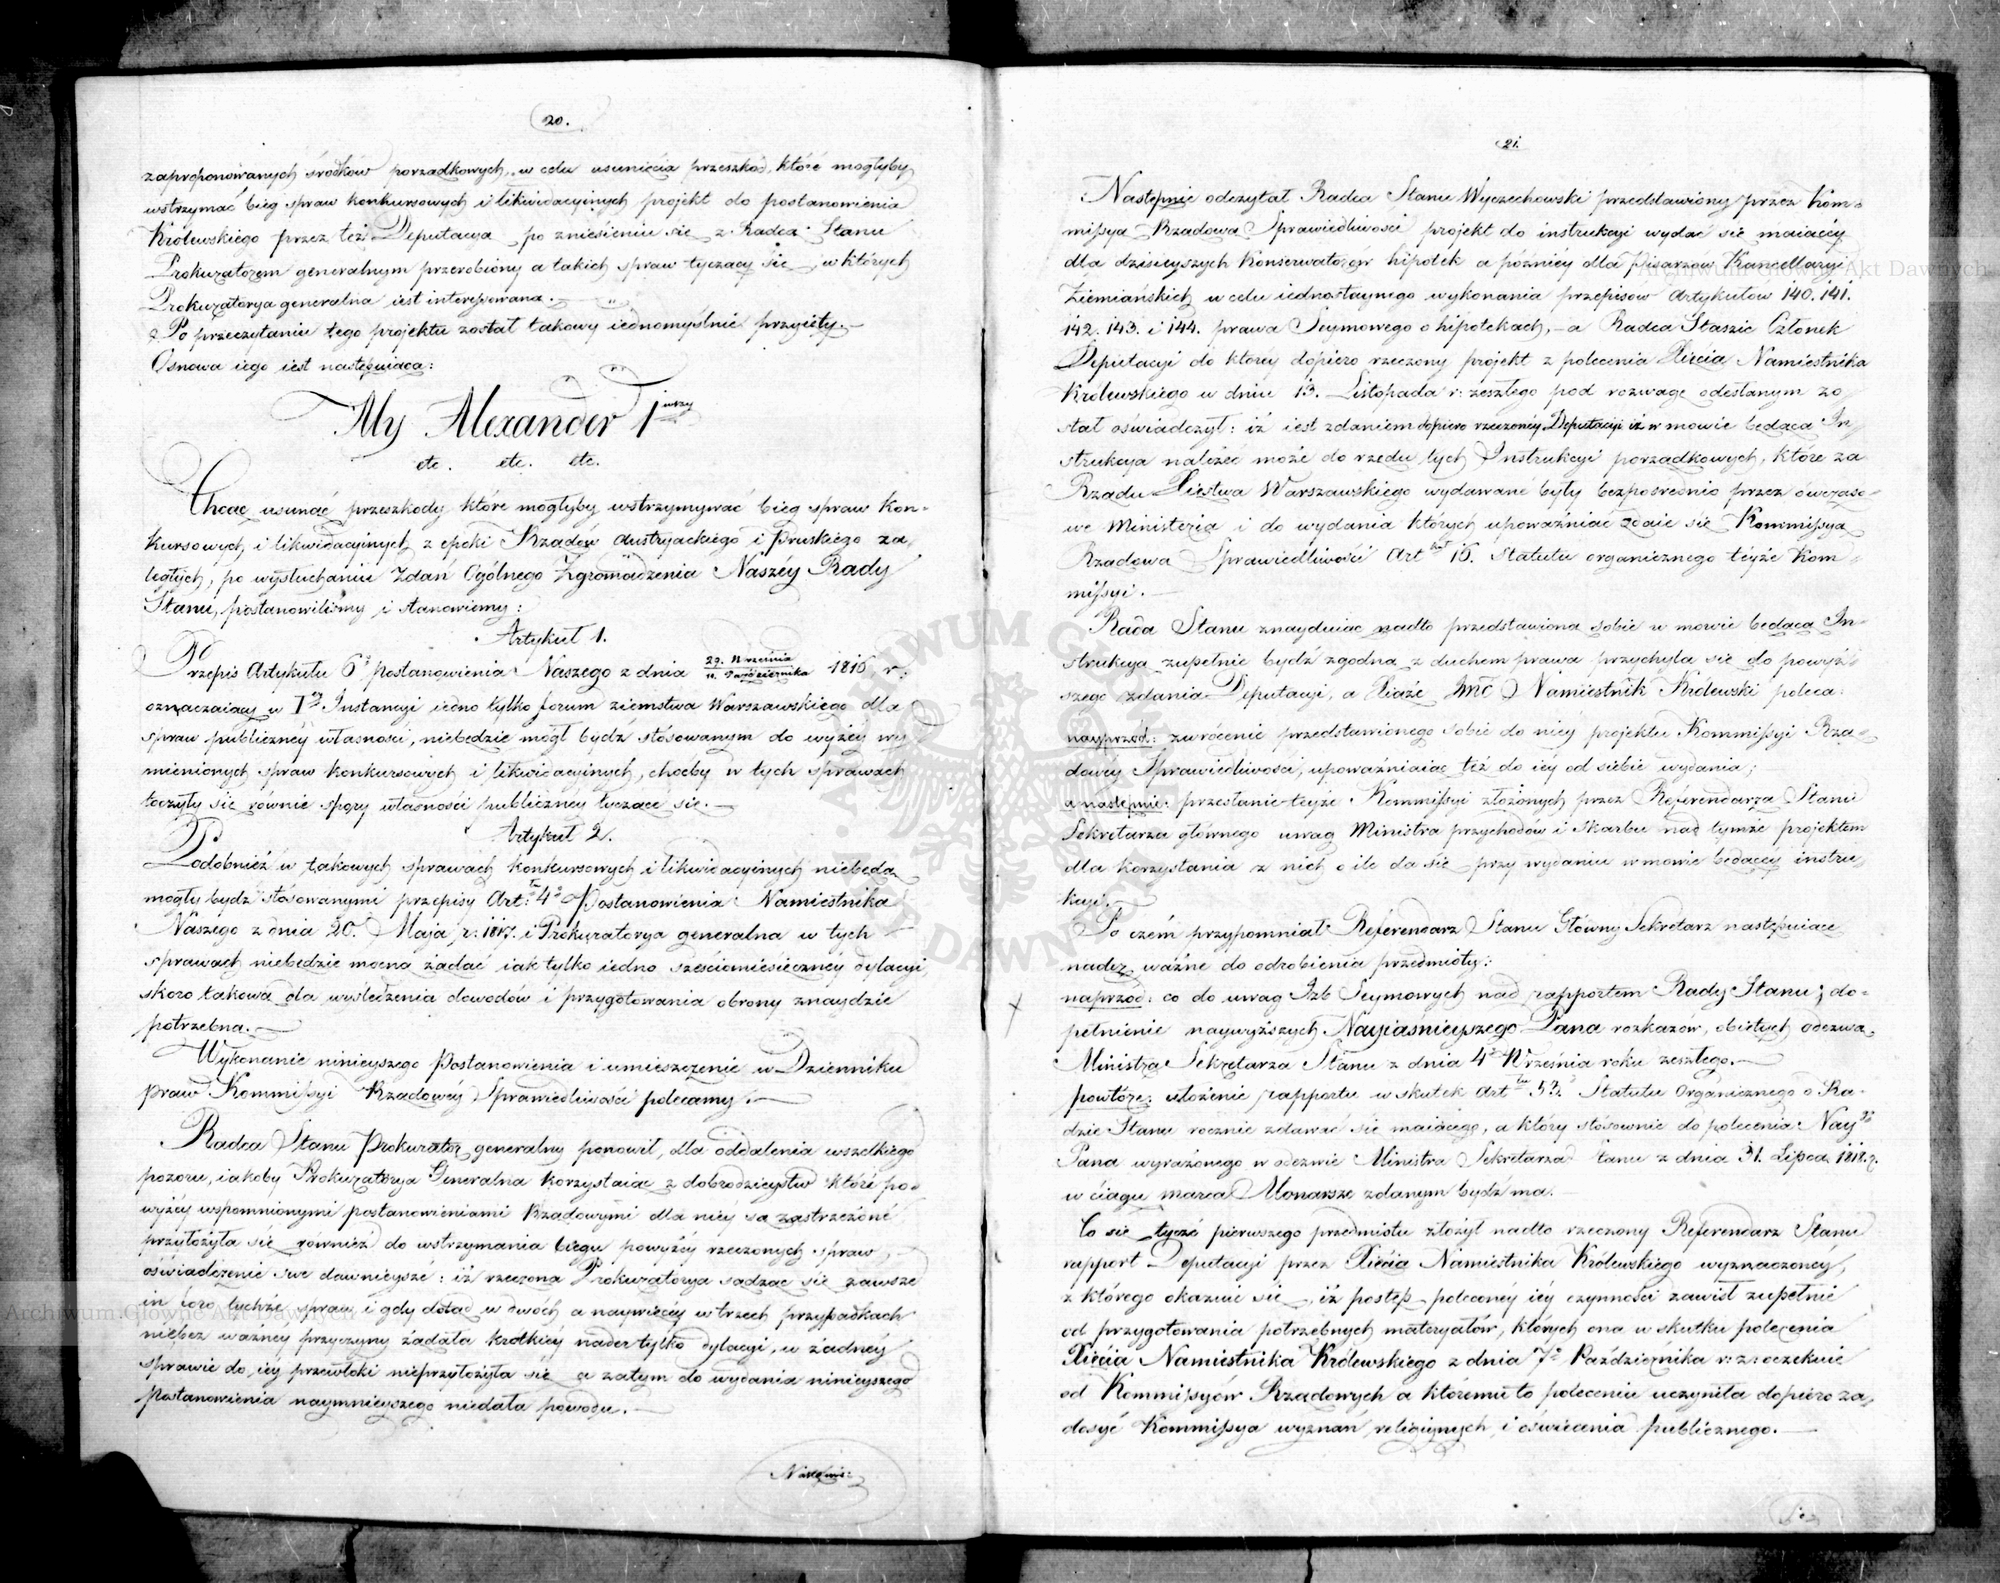 20.
zaproponowanych środków porządkowych, w celu usunięcia przeszkod, które mogłyby
wstrzymać bieg spraw konkursowych i likwidacyinych projekt do postanowienia
Królewskiego przez też Deputacya po zniesieniu się z Radcą Stanu
Prokuratorem generalnym przerobiony a takich spraw tyczący się, w których
Prokuratorya generalna iest interessowana.
Po przeczytaniu tego projektu został takowy iednomyślnie przyięty.
Osnowa iego iest następuiąca:
My Alexander 1wszy
etc. etc. etc.
Chcąc usunąć przeszkody które mogłyby wstrzymywać bieg spraw kon-
kursowych i likwidacyinych z epoki Rządów Austryackiego i Pruskiego za
ległych, po wysłuchaniu Zdań Ogólnego Zgromadzenia Naszéy Rady
Stanu, postanowiliśmy i stanowiemy:
Artykuł 1.
Przepis Artykułu 6o postanowienia Naszego z dnia 29. Września / 11. Października 1816 r:
oznaczaiący w Iéy Instancyi iedno tylko forum ziemstwa Warszawskiego dla
spraw publicznéy własności, niebędzie mógł bydź stósowanym do wyżéy wy
mienionych spraw konkursowych i likwidacyinych, choćby w tych sprawach
toczyły się równie spory własności publicznéy tyczące się.
Artykuł 2.
Podobnież w takowych sprawach konkursowych i likwidacyinych niebędą
mogły bydź stósowanymi przepisy Art: 4o Postanowienia Namiestnika
Naszego z dnia 20. Maja r: 1817. i Prokuratorya generalna w tych
sprawach niebędzie mocna żądać iak tylko iedno sześciomiesięcznéy dylacyi,
skoro takowa dla wyśledzenia dowodów i przygotowania obrony znaydzie
potrzebną.
Wykonanie ninieyszego Postanowienia i umieszczenie w Dzienniku
praw Kommissyi Rządowéy Sprawiedliwości polecamy.
Radca Stanu Prokurator generalny ponowił, dla oddalenia wszelkiego
pozoru, iakoby Prokuratorya Generalna korzystaiąc z dobrodzieystw które po-
wyżéy wspomnionymi postanowieniami Rządowymi dla niéy są zastrzeżone
przyłożyła się również do wstrzymania biegu powyżéy rzeczonych spraw,
oświadczenie swe dawnieysze: iż rzeczona Prokuratorya sądząc się zawsze
in foro tychże spraw i gdy dotąd w dwóch a naywięcéy w trzech przypadkach
niebez ważnéy przyczyny żądała krótkiéy nader tylko dylacyi, w żadnéy
sprawie do iéy przewłoki nieprzyłożyła się a zatym do wydania ninieyszego
postanowienia naymnieyszego niedała powodu.
Następnie:
21.
Następnie odczytał Radca Stanu Wyczechowski przedstawiony przez Kom-
missyą Rządową Sprawiedliwości projekt do instrukcyi wydać się maiącéy
dla dzisieyszych Konserwatorów hipotek a poźniéy dla Pisarzów Kancellaryi
Ziemiańskich w celu iednostaynego wykonania przepisów Artykułów 140. 141.
142. 143. i 144. prawa Seymowego o hipotekach, a Radca Staszic Członek
Deputacyi do któréy dopiero rzeczony projekt z polecenia Xięcia Namiestnika
Królewskiego w dniu 13. Listopada r: zeszłego pod rozwagę odesłanym zo
stał oświadczył: iż iest zdaniem dopiero rzeczonéy Deputacyi iż w mowie będąca In
strukcya należeć może do rzędu tych Instrukcyi porządkowych, które za
Rządu Xięstwa Warszawskiego wydawane były bezpośrednio przez ówczaso-
we Ministeria i do wydania których upoważniać zdaie się Kommissyą
Rządową Sprawiedliwości Art 16. Statutu organicznego teyże Kom-
missyi.
Rada Stanu znayduiąc nadto przedstawioną sobie w mowie będącą In-
strukcyą zupełnie bydź zgodną z duchem prawa przychyla się do powyż-
szego zdania Deputacyi, a Xiąże JMC Namiestnik Królewski poleca:
nayprzód: zwrócenie przedstawionego sobie do niéy projektu Kommissyi Rzą-
dowéy Sprawiedliwości, upoważniaiąc też do iéy od siebie wydania;
a następnie: przesłanie teyże Kommissyi złożonych przez Referendarza Stanu
Sekretarza głównego uwag Ministra przychodów i skarbu nad tymże projektem
dla korzystania z nich o ile da się przy wydaniu w mowie będącéy instru
kcyi.
Po czém przypomniał Referendarz Stanu Główny Sekretarz następuiące
nader ważne do odrobienia przedmioty:
naprzód: co do uwag Izb Seymowych nad rapportem Rady Stanu; do-
pełnienie naywyższych Nayiaśnieyszego Pana rozkazów, obiętych odezwą
Ministra Sekretarza Stanu z dnia 4o Września roku zeszłego.
powtóre: ułożenie rapportu w skutek Art 53. Statutu Organicznego o Ra-
dzie Stanu rocznie zdawać się maiącego, a który stósownie do polecenia Nay
Pana wyrażonego w odezwie Ministra Sekretarza Stanu z dnia 31. Lipca 1818. r.
w ciągu marca Monarsze zdanym bydź ma.
Co się tycze pierwszego przedmiotu złożył nadto rzeczony Referendarz Stanu
rapport Deputacyi przez Xięcia Namiestnika Królewskiego wyznaczonéy,
z którego okazuie się, iż postęp poleconéy iéy czynności zawisł zupełnie
od przygotowania potrzebnych materyałów, których ona w skutku polecenia
Xięcia Namiestnika Królewskiego z dnia 7o Października r: z: oczekuie
od Kommissyów Rządowych a któremu to poleceniu uczyniła dopiero za-
dosyć Kommissya wyznań religiynych i oświecenia publicznego.
Archiwum Główne Akt Dawnych
Archiwum Główne Akt Dawnych